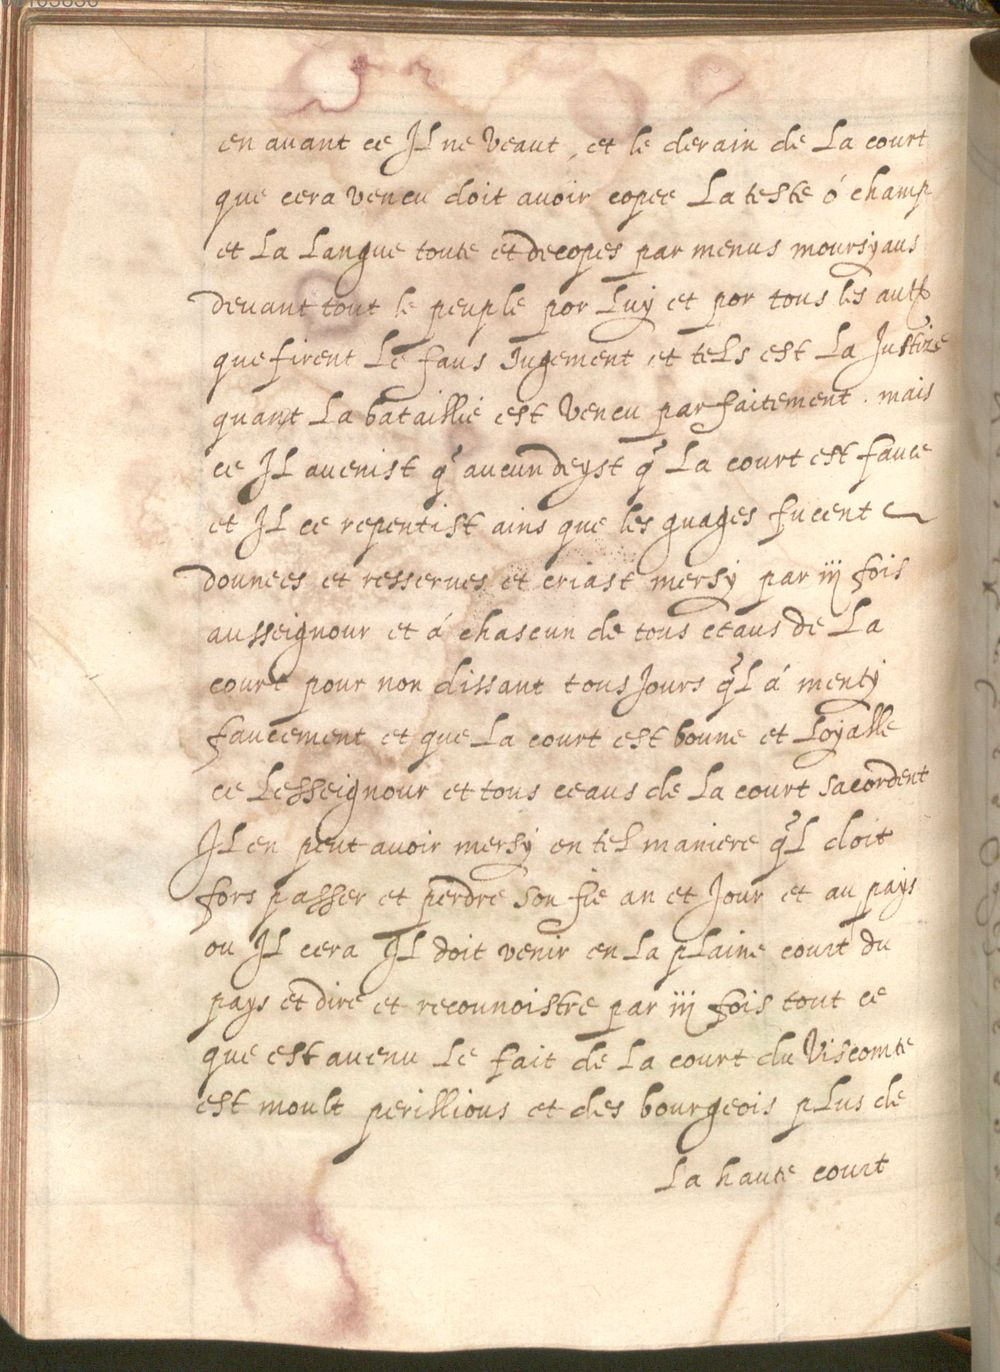 en auant ce JL ne Veaut, et le derain de La court
que cera vencu doit auoir copee La teste ó champ
et La Langue toute et decopes par menus moursyaus
deuant tout le peuple por Luy et por tous les autr̃
que firent Le faus Jugement, et teLs est La Justize
quant La bataillie est Vencu parfaitement. mais
ce JL auenist q̃ aucun deyst q̃ La court est fauce
et JL ce repentist ains que les guages fucent
dounees et resserues et criast mersy par iij fois
ausseignour et á chascun de tous ceaus de La
court pour non dissant tous Jours q̃L á menty
faucement et que La court est boune et Loyalle
ce Lesseignour et tous ceaus de La court sacordent
JL en peut auoir mersy en teL maniere q̃L doit
fors passer et perdre son fie an et Jour et au pays
ou JL cera JL doit venir en La pLaine court du
pays et dire et recounoistre par iij fois tout ce
que est auenu Le fait de La court du Viscomte
est moult perillious et des bourgeois pLus de
La haute court